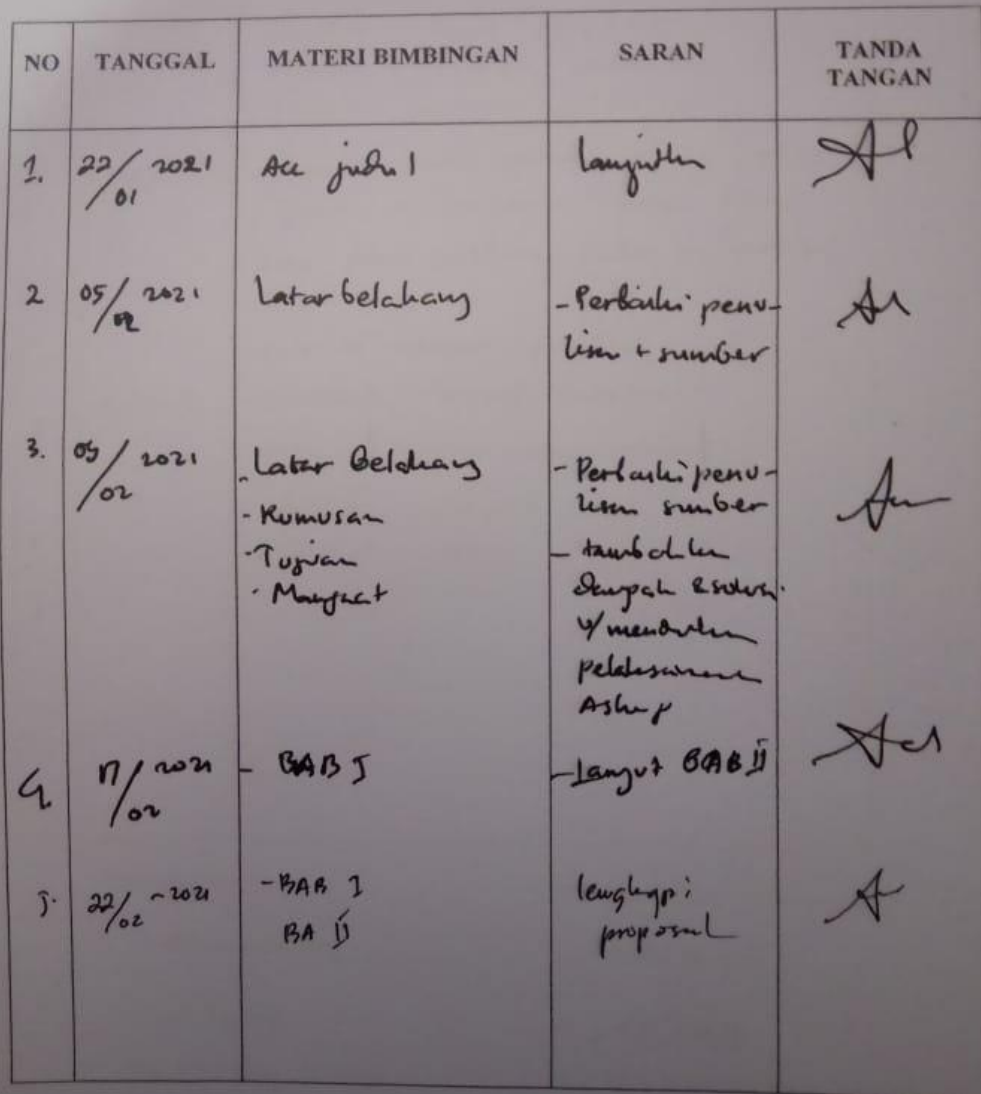 NO TANGGAL MATERI BIMBINGAN SARAN TANDA TANGAN
1. 22/01 2021 Acc judul Lanjutkan
2 05/02 2021 Latar belakang - Perbaiki penu-
lisan + sumber
3. 09/02 2021 - Latar Belakang - Perbaiki penu-
- Rumusan lisan sumber
- Tujuan - tambahkan
- Manfaat dampak & solusi
u/ mendukung
pelaksanaan
Askep
4. 17/02 2021 - BAB I - Lanjut BAB II
5. 22/02 - 2021 - BAB I lengkapi
BA II proposal